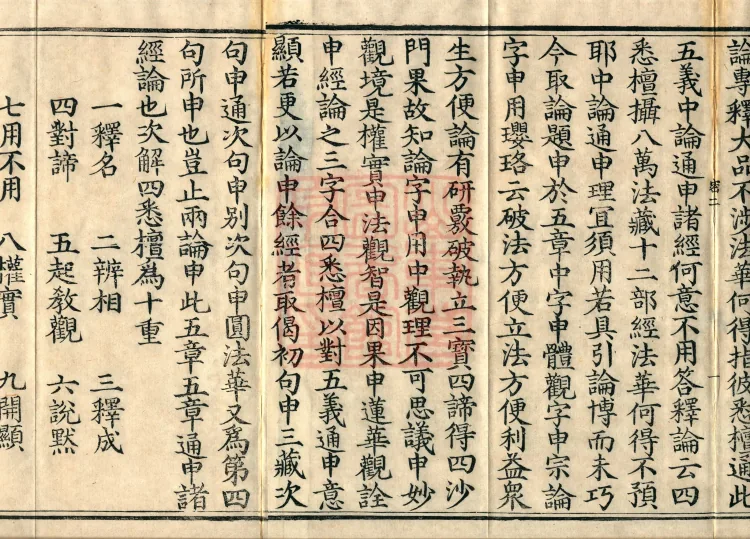 論專釋大品不涉法華何得指彼悉檀通此
五義中論通申諸經何意不用答釋論云四
悉檀攝八萬法藏十二部經法華何得不預
耶中論通申理宜須用若具引論博而未巧
今取論題申於五章中字申體觀字申宗論
字申用瓔珞云破法方便立法方便利益衆
生方便論有研覈破執立三寶四諦得四沙
門果故知論字申用中觀理不可思議申妙
觀境是權實申法觀智是因果申蓮華觀詮
申經論之三字合四悉檀以對五義通申意
顯若更以論申餘經者取偈初句申三藏次
句申通次句申別次句申圓法華又爲第四
句所申也豈止兩論申此五章五章通申諸
經論也次解四悉檀爲十重
一釋名　二辨相　三釋成
四對諦　五起教觀　六説黙
七用不用　八權實　九開顯